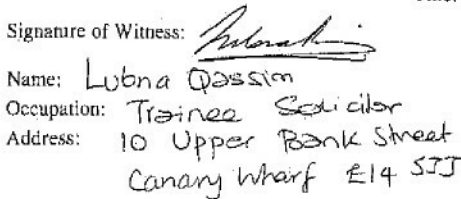 Signature of Witness:
Name: Lubna Qassim
Occupation: Trainee Solicitor
Address: 10 Upper Bank Street
Canary Wharf E14 5JJ